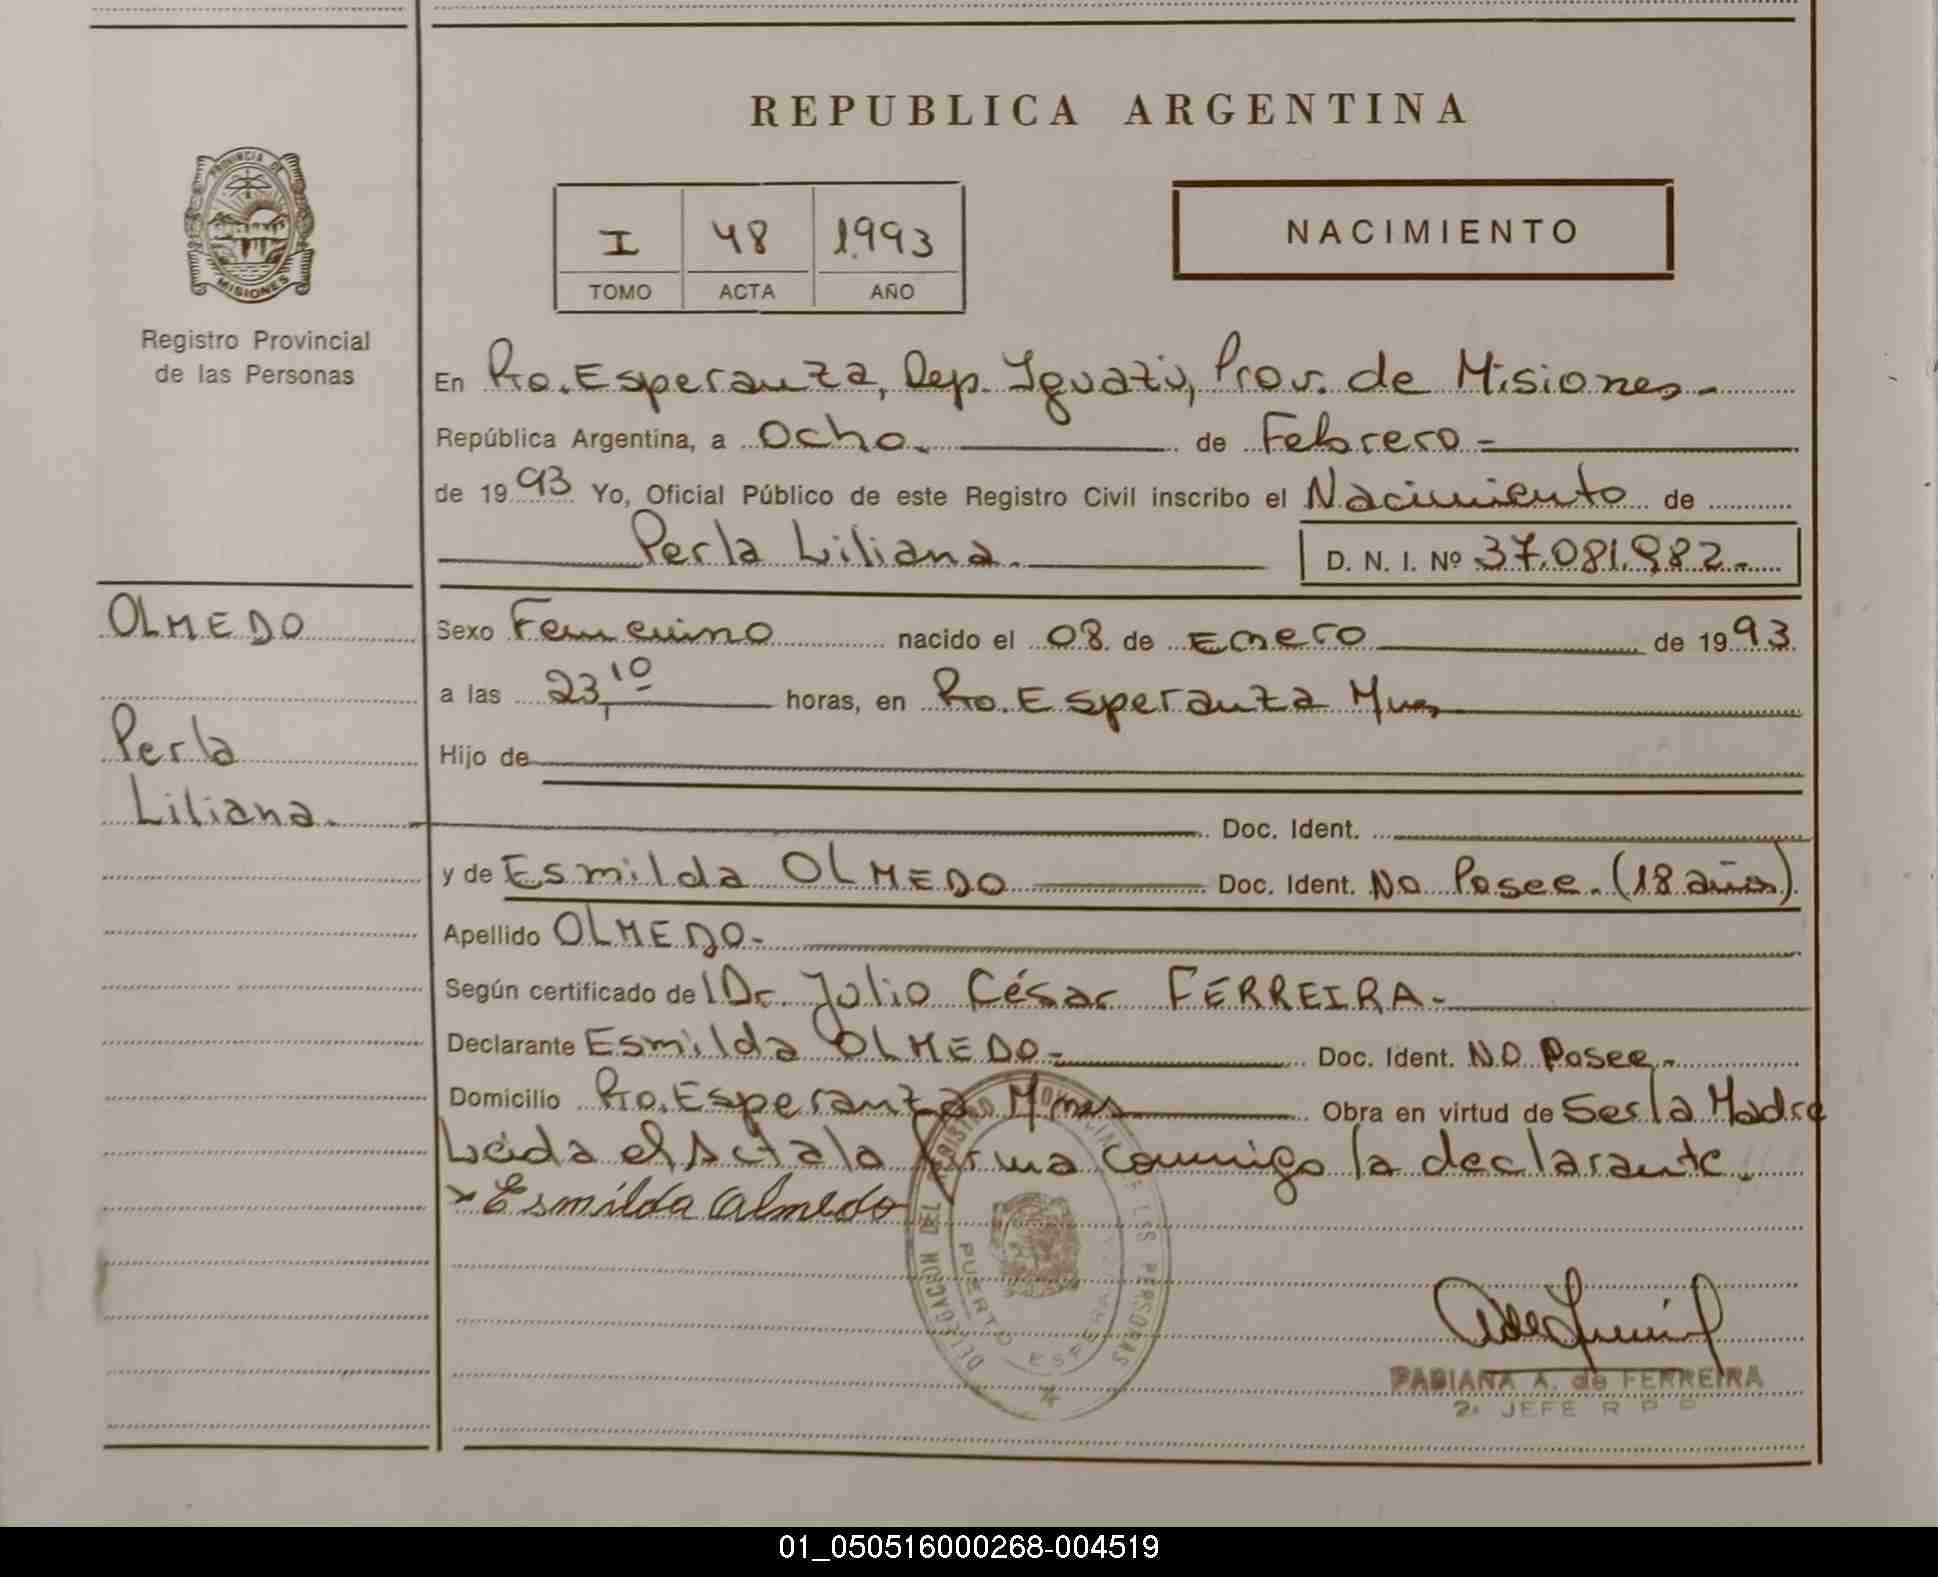 REPUBLICA ARGENTINA
PROVINCIA DE
MISIONES
Registro Provincial
de las Personas
I 48 1993
TOMO ACTA AÑO
NACIMIENTO
En Pto. Esperanza, Dep. Iguazú, Prov. de Misiones.-
República Argentina, a Ocho. de Febrero-
de 1993 Yo, Oficial Público de este Registro Civil inscribo el Nacimiento de
Perla Liliana. D. N. I. Nº 37.081.982.-
OLMEDO
Perla
Liliana.
Sexo Femenino nacido el 08 de Enero de 1993.
a las 23,10 horas, en Pto. Esperanza Mnes
Hijo de
Doc. Ident.
y de Esmilda OLMEDO Doc. Ident. No Posee. (18 años)
Apellido OLMEDO-
Según certificado de l Dr. Julio César FERREIRA.-
Declarante Esmilda OLMEDO- Doc. Ident. No Posee.-
Domicilio Pto. Esperanza Mnes Obra en virtud de Ser la Madre
Leída el Acta la firma conmigo la declarante.
x Esmilda Olmedo
DELEGACION DEL REGISTRO PROVINCIAL DE LAS PERSONAS
PUERTO ESPERANZA
FABIANA A. de FERREIRA
2º JEFE R P P
01_050516000268-004519